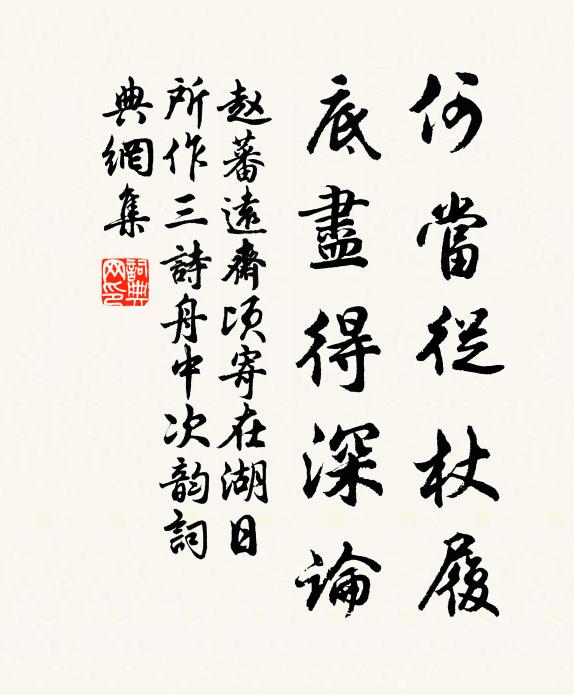 何當從杖履
底盡得深論
赵蕃遠齋頃寄在湖日
所作三詩舟中次韵詞
典網集
詞典网印